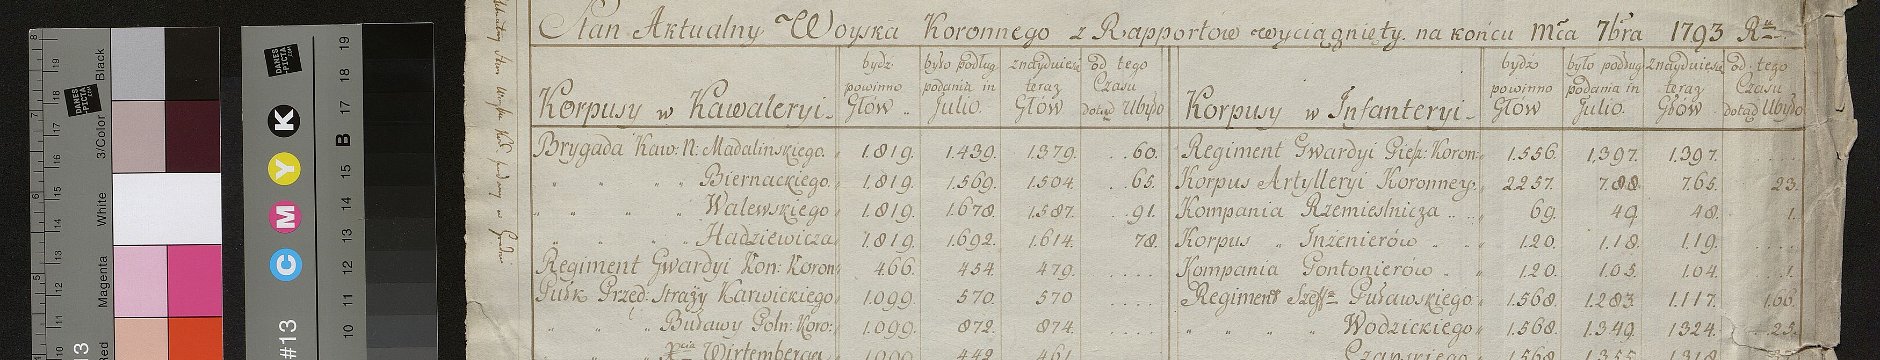 Stan Aktualny Woyska Koronnego z Rapportów wyciągnięty. na końcu Mca 7bra 1793 Ru
Korpusy w Kawaleryi
bydź powinno Głów
było podług podania in Julio
znayduie się teraz Głów
od tego Czasu dotąd Ubyło
Korpusy w Infanteryi
bydź powinno Głów
było podług podania in Julio.
znayduie się teraz Głów
od tego Czasu dotąd Ubyło
Brygada Kaw: N. Madalinskiego. 1.819. 1.439. 1.379. ..60. Regiment Gwardyi Pieß: Koron: 1.556. 1,397. 1.397. ....
" " " " Biernackiego. 1.819. 1.569. 1.504. ..65. Korpus Artylleryi Koronney. 2257. 788. 765. 23.
" " " " Walewskiego 1.819. 1.678. 1.587. ..91. Kompania Rzemieslnicza .. 69. 49. 48. 1.
" " " " Hadziewicza 1.819. 1.692. 1.614. 78. Korpus " Inżenierów . 120. 118. 119. ....
Regiment Gwardyi Kon: Koron 466. 454. 479. .... Kompania Pontonierów . 120. 105. 104. ...1.
Pułk Przed: Straży Karwickiego 1.099. 570. 570 .... Regiment Szeffa Puławskiego 1.568. 1.283. 1.117. 166.
" " " Buławy Poln: Koro: 1.099. 872. 874. .... " " " " Wodzickiego 1.568. 1.349. 1324. ..25.
" " " Xcia Wirtemberga 1099. 442. 461. Czapskiego 1568. 1355. 1318.
DANES PICTA .COM
DANES PICTA .COM
3/Color Black
White
Magenta
Red
8 7 6 5
19 18 17 16 15 14 13 12 11 10
K
Y
M
C
B
#13
13
19 18 17 15 14 13 12 11 10